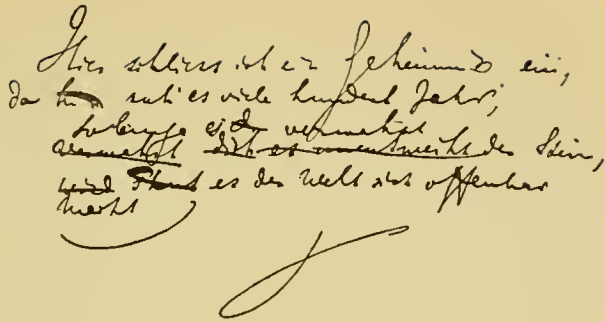 Hier schliess ich ein Geheimniss ein,
da ruh' es viele hundert Jahr;
so lange es verwahrt
verwahrt der Stein,
es der Welt sich offenbar
macht